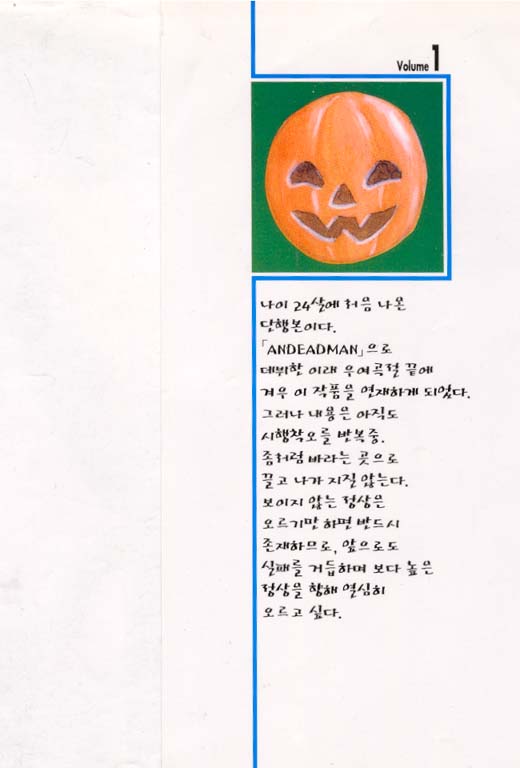 Volume 1
나이 24살에 처음 나온
단행본이다.
「ANDEADMAN」으로
데뷔한 이래 우여곡절 끝에
겨우 이 작품을 연재하게 되었다.
그러나 내용은 아직도
시행착오를 반복중.
좀처럼 바라는 곳으로
끌고 나가 지질 않는다.
보이지 않는 정상은
오르기만 하면 반드시
존재하므로, 앞으로도
실패를 거듭하며 보다 높은
정상을 향해 열심히
오르고 싶다.